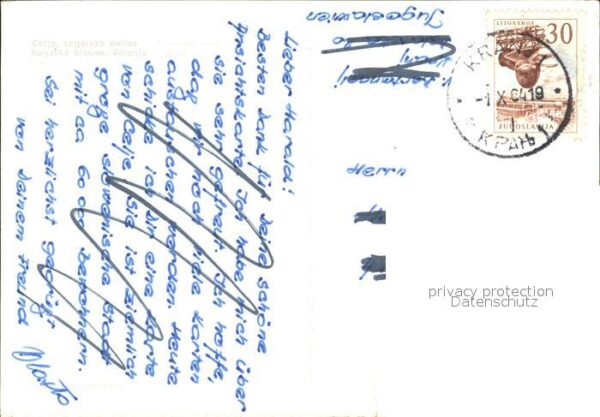 Celje, Logarska dolina
Rogaška Slatina, Velenje
Lieber Harald!
Besten Dank für deine schöne
Ansichtskarte. Ich habe mich über
sie sehr gefreut. Ich hoffe,
dag wir noch viele Karten
austauschen werden. Heute
schicke ich dir eine Karte
von Celje. Sie ist ziemlich
große slowenische Stadt
mit ca 60000 Bewohnern.
Sei herzlichst gegrüßt
von deinem Freund
Jugoslawien
Herrn
LITOSTROJ
30
JUGOSLAVIJA
KRANJ
X 64 19
КРАЊ
privacy protection
Datenschutz